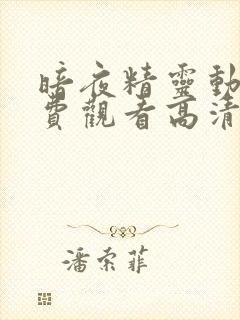 暗夜精靈動
費觀看高清
潘索菲